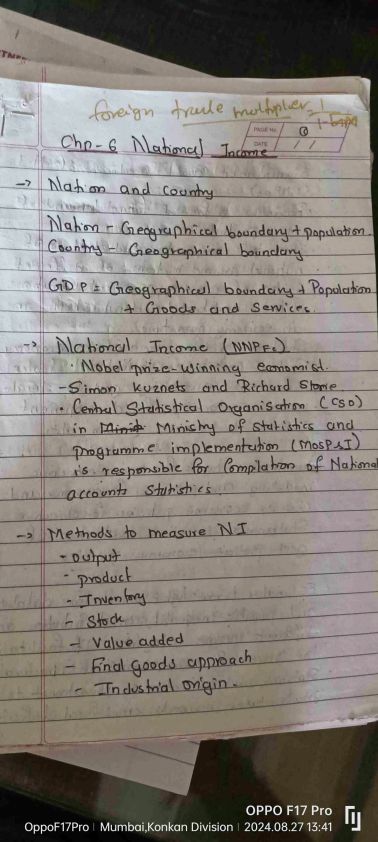 foreign trade multiplier = 1
PAGE No. 1
DATE / /
Chp-6 National Income
→ Nation and country
Nation - Geographical boundary + population.
Country - Geographical boundary
GDP = Geographical boundary + Population
+ Goods and Services.
→ National Income (NNPFC)
• Nobel prize-winning economist.
- Simon kuznets and Richard Stone
• Central Statistical Organisation (CSO)
in Ministry of statistics and
programme implementation (MOSP&I)
is responsible for Compilation of National
accounts Statistics.
→ Methods to measure NI
- output
- product
- Inventory
- Stock
- Value added
- Final Goods approach
- Industrial origin.
OPPO F17 Pro
OppoF17Pro | Mumbai,Konkan Division | 2024.08.27 13:41